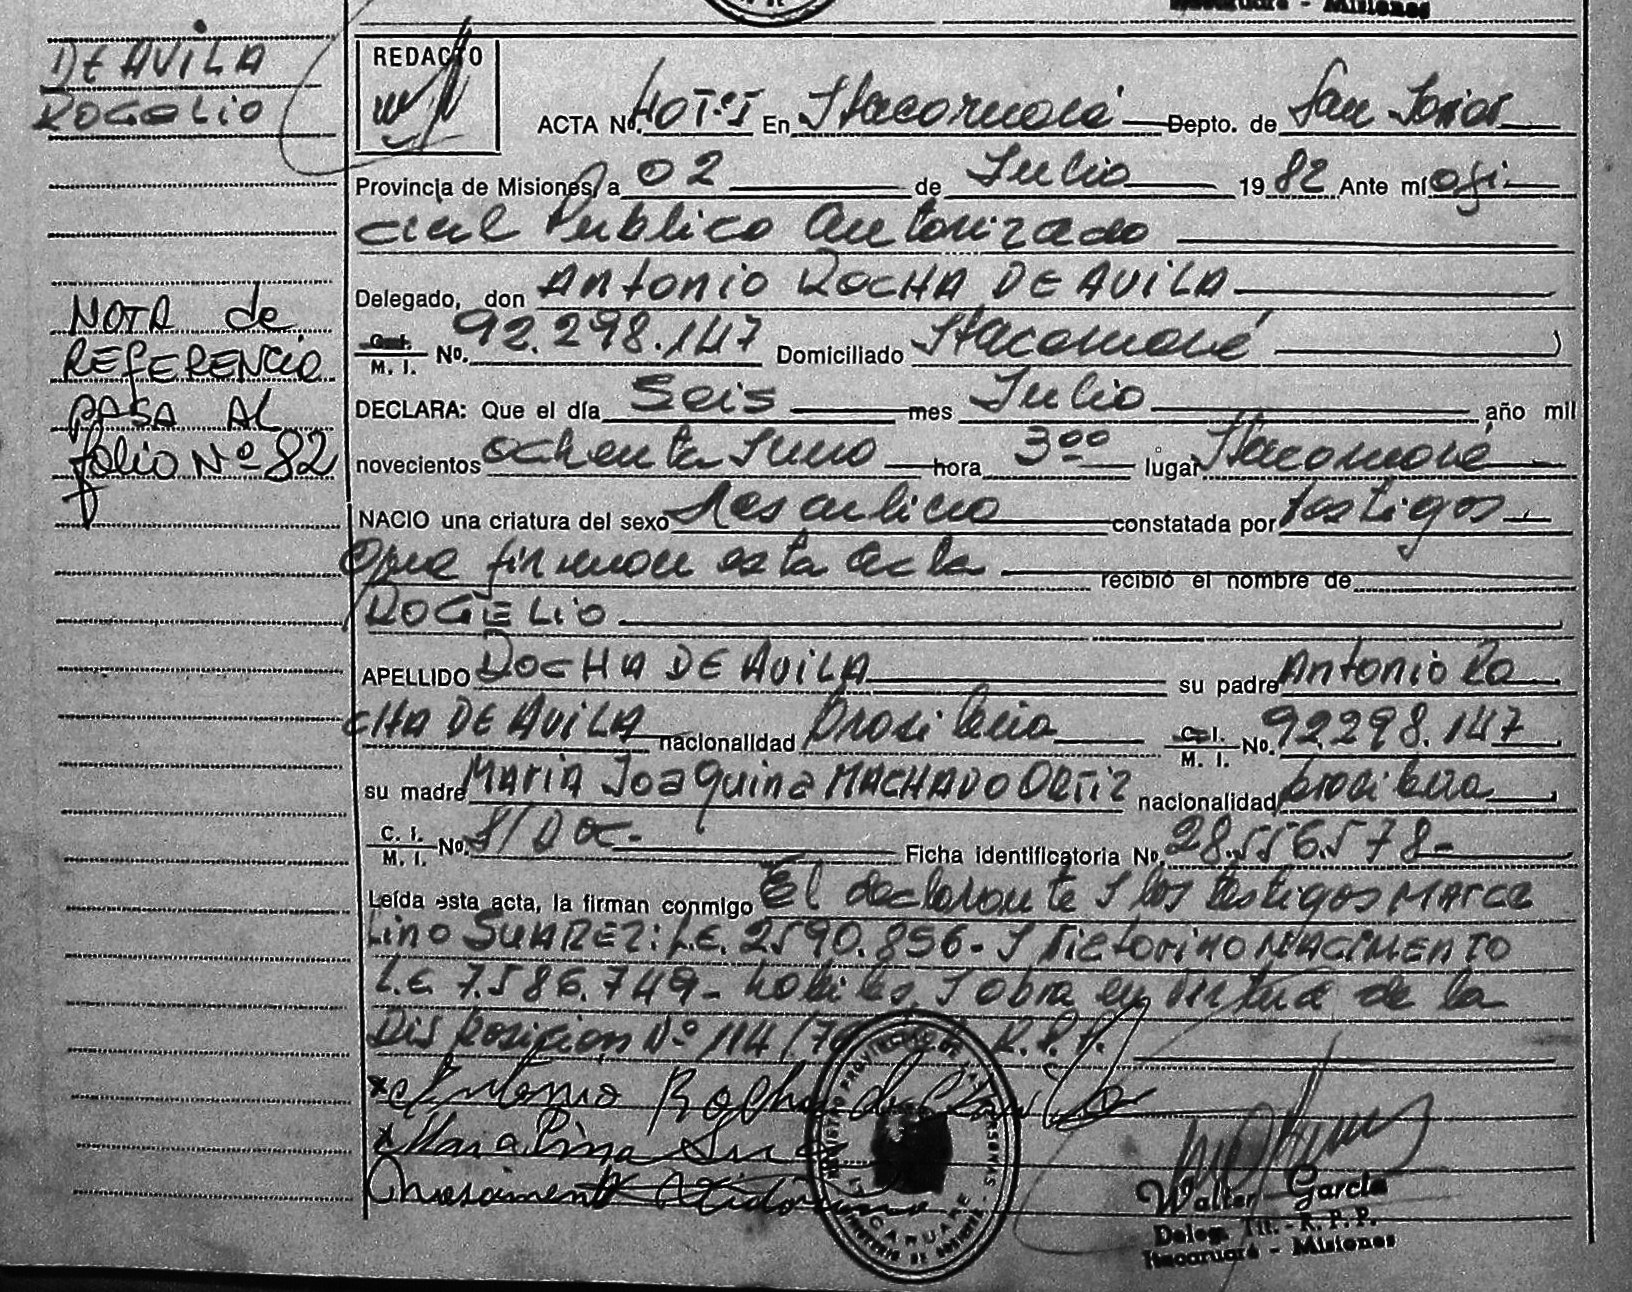 Itacaruaré - Misiones
DE AVILA
ROGELIO
REDACTO
ACTA Nº. HOT:I En Itacaruaré Depto. de San Javier
Provincia de Misiones, a 02 de Julio 1982 Ante mí ofi-
cial Publico autorizado
Delegado, don Antonio ROCHA DE AVILA
C. I. / M. I. Nº. 92.298.147 Domiciliado Itacaruaré
DECLARA: Que el día Seis mes Julio año mil
novecientos ochenta I uno hora 3ºº lugar Itacaruaré
NACIO una criatura del sexo Masculino constatada por testigos
Que firman esta acta recibió el nombre de
ROGELIO
APELLIDO ROCHA DE AVILA su padre Antonio Ro
CHA DE AVILA nacionalidad brasileña C. I. / M. I. Nº. 92.298.147
su madre Maria Joaquina MACHADO ORTIZ nacionalidad brasileña
C. I. / M. I. Nº. S/Doc. Ficha identificatoria Nº. 28.556.578-
Leída esta acta, la firman conmigo El declarante I los testigos MARCE
Lino SUAREZ: L.E. 2590.856- I Victorino NACIMENTO
L.E. 7.586.749- hábiles, I obra en virtud de la
Disposicion Nº 114/ R.P.P.
Antonio Rocha de Avila
NOTA de
REFERENCIA
PASA AL
folio Nº 82
Walter García
Deleg. Tit. - R. P. P.
Itacaruaré - Misiones